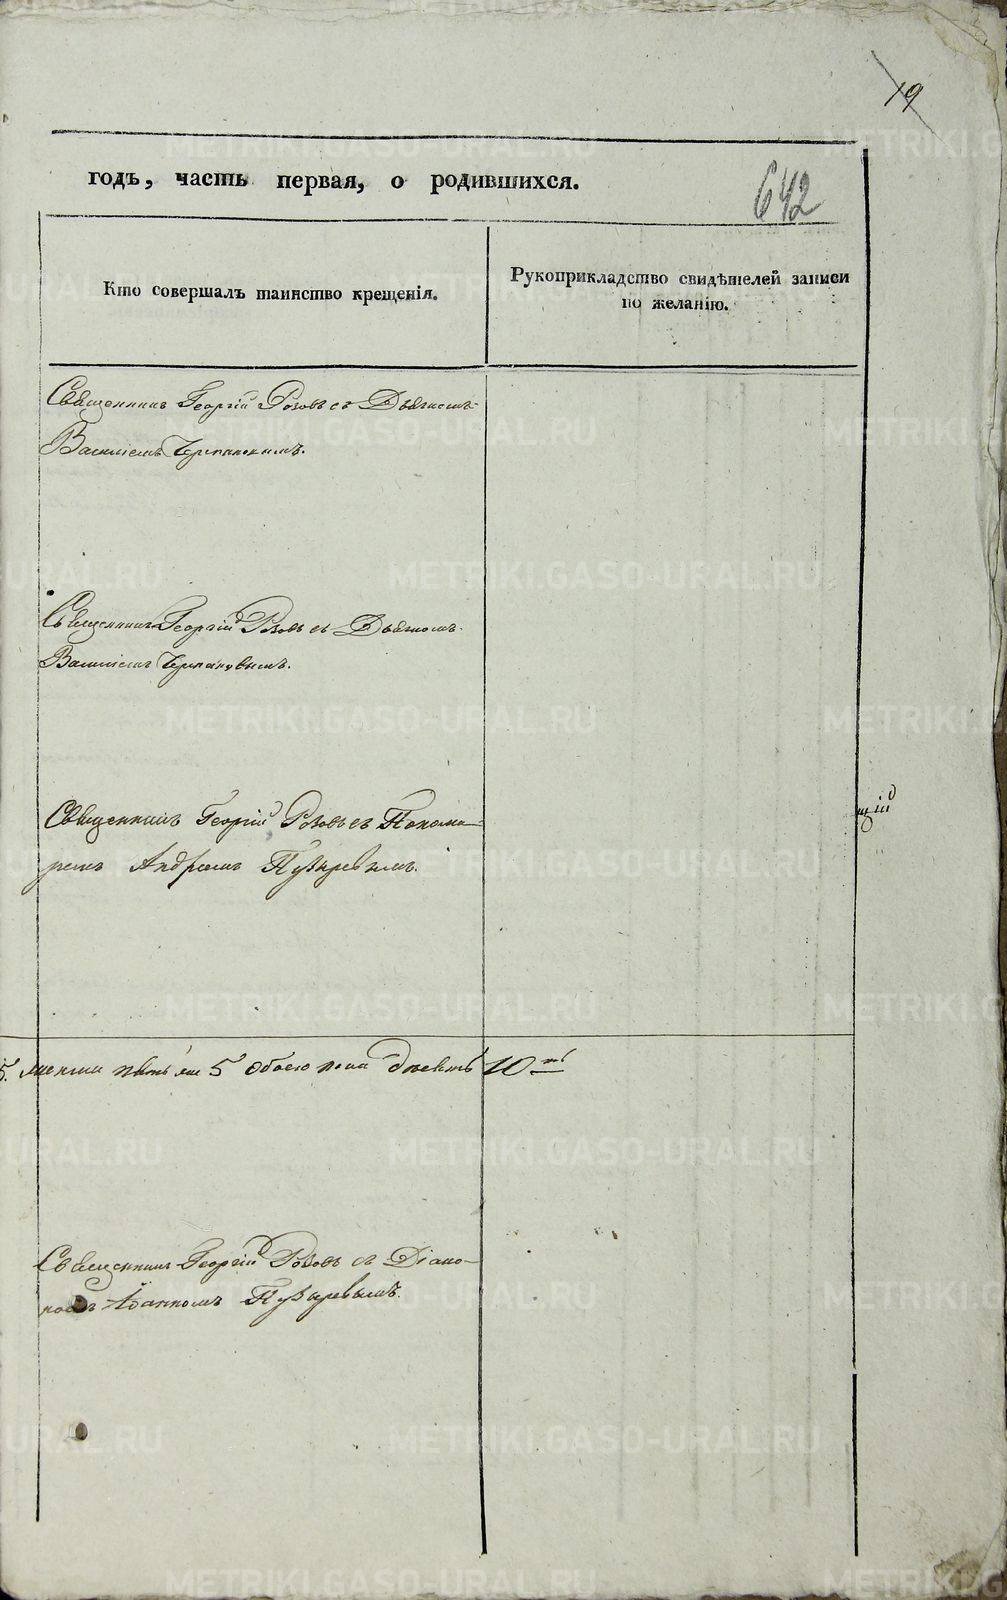 19
годъ, часть первая, о родившихся.
642
Кто совершалъ таинство крещенія.
Рукоприкладство свидѣтелей записи
по желанію.
Священникъ Георгій Розовъ съ Дьячкомъ
Василіемъ
Священникъ Георгій Розовъ съ Дьячкомъ
Василіемъ
Священникъ Георгій Розовъ съ Понома-
ремъ Андреемъ Пузыревымъ.
щій
5. женска пять 5 обоего пола 10ть
Священникъ Георгій Розовъ съ Діако-
номъ Іоанномъ Пузыревымъ.
METRIKI.GASO-URAL.RU